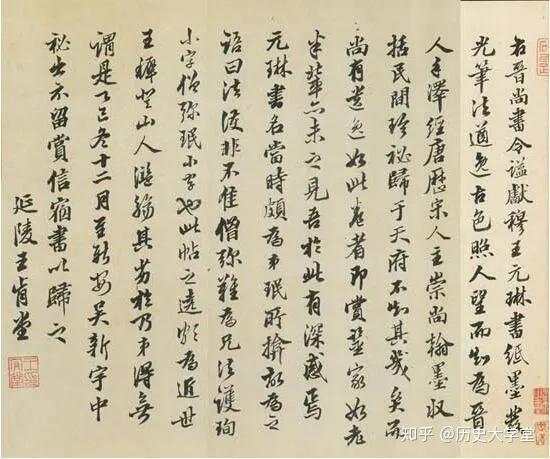 右晉尚書令謚獻穆王元琳書紙墨發
光筆法遒逸古色照人望而知為晉
人手澤經唐歷宋人主崇尚翰墨收
括民間珍秘歸于天府不知其幾矣而
尚有遺逸如此卷者即賞鑒家如老
米輩亦未之見吾於此有深感焉
元琳書名當時頗為弟珉所掩故為之
語曰法護非不佳僧彌難為兄法護珣
小字僧彌珉小字也此帖之為近世
王穉登山人濫觴其劣於乃弟得無
謂是乙巳冬十二月至新安吳新宇中
秘出示留賞信宿書以歸之
延陵王肯堂
知乎 @历史大学堂